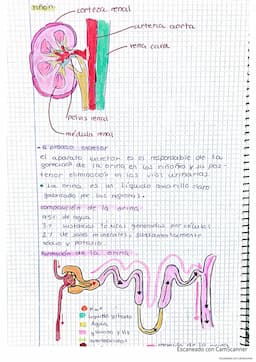 riñon
corteza renal
arteria aorta
vena cava
pelvis renal
médula renal
el proceso excretor
el aparato excretor es el responsable de la
de la orina en los riñones y su pos-
terior eliminación en las vías urinarias.
La orina es un líquido amarillo claro
por los riñones.
composición de la orina
95% de agua
3% sustancias tóxicas generadas por células
2% de sales minerales,
sodio y potasio.
Formación de la orina
Agua
Escaneado con CamScanner